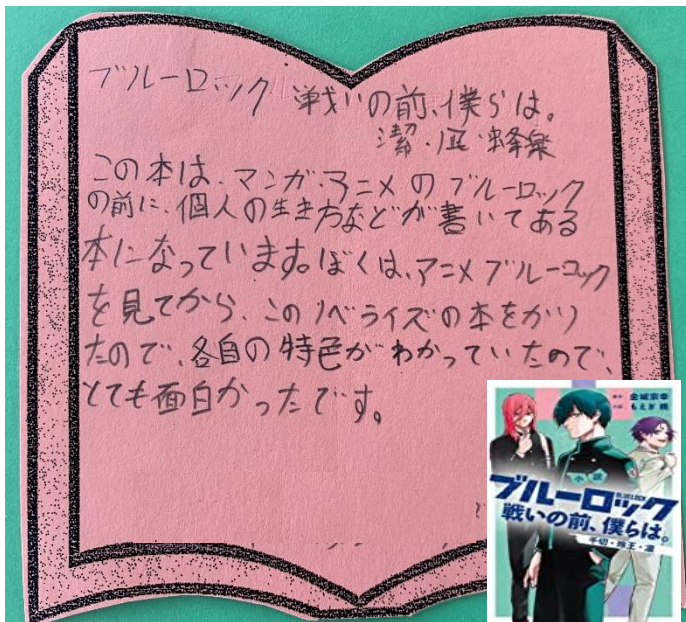 ブルーロック 戦いの前、僕らは。
潔・凪・蜂楽
この本は、マンガ・アニメのブルーロック
の前に、個人の生き方などが書いてある
本になっています。ぼくは、アニメブルーロック
を見てから、このノベライズの本をかり
たので、各自の特色がわかっていたので、
とても面白かったです。
原作 金城宗幸
もえぎ 桃
小説
ブルーロック
BLUELOCK
戦いの前、僕らは。
千切・玲王・凛